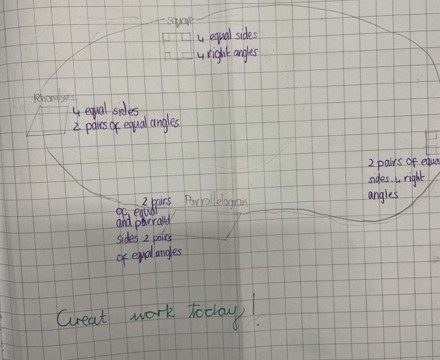 square
4 equal sides
4 right angles
Rhombus
4 equal sides
2 pairs of equal angles
2 pairs of equa
sides. 4 right
angles
Parrallelogram
2 pairs
of equal
and parralld
sides 2 pairs
of equal angles
Great work today!